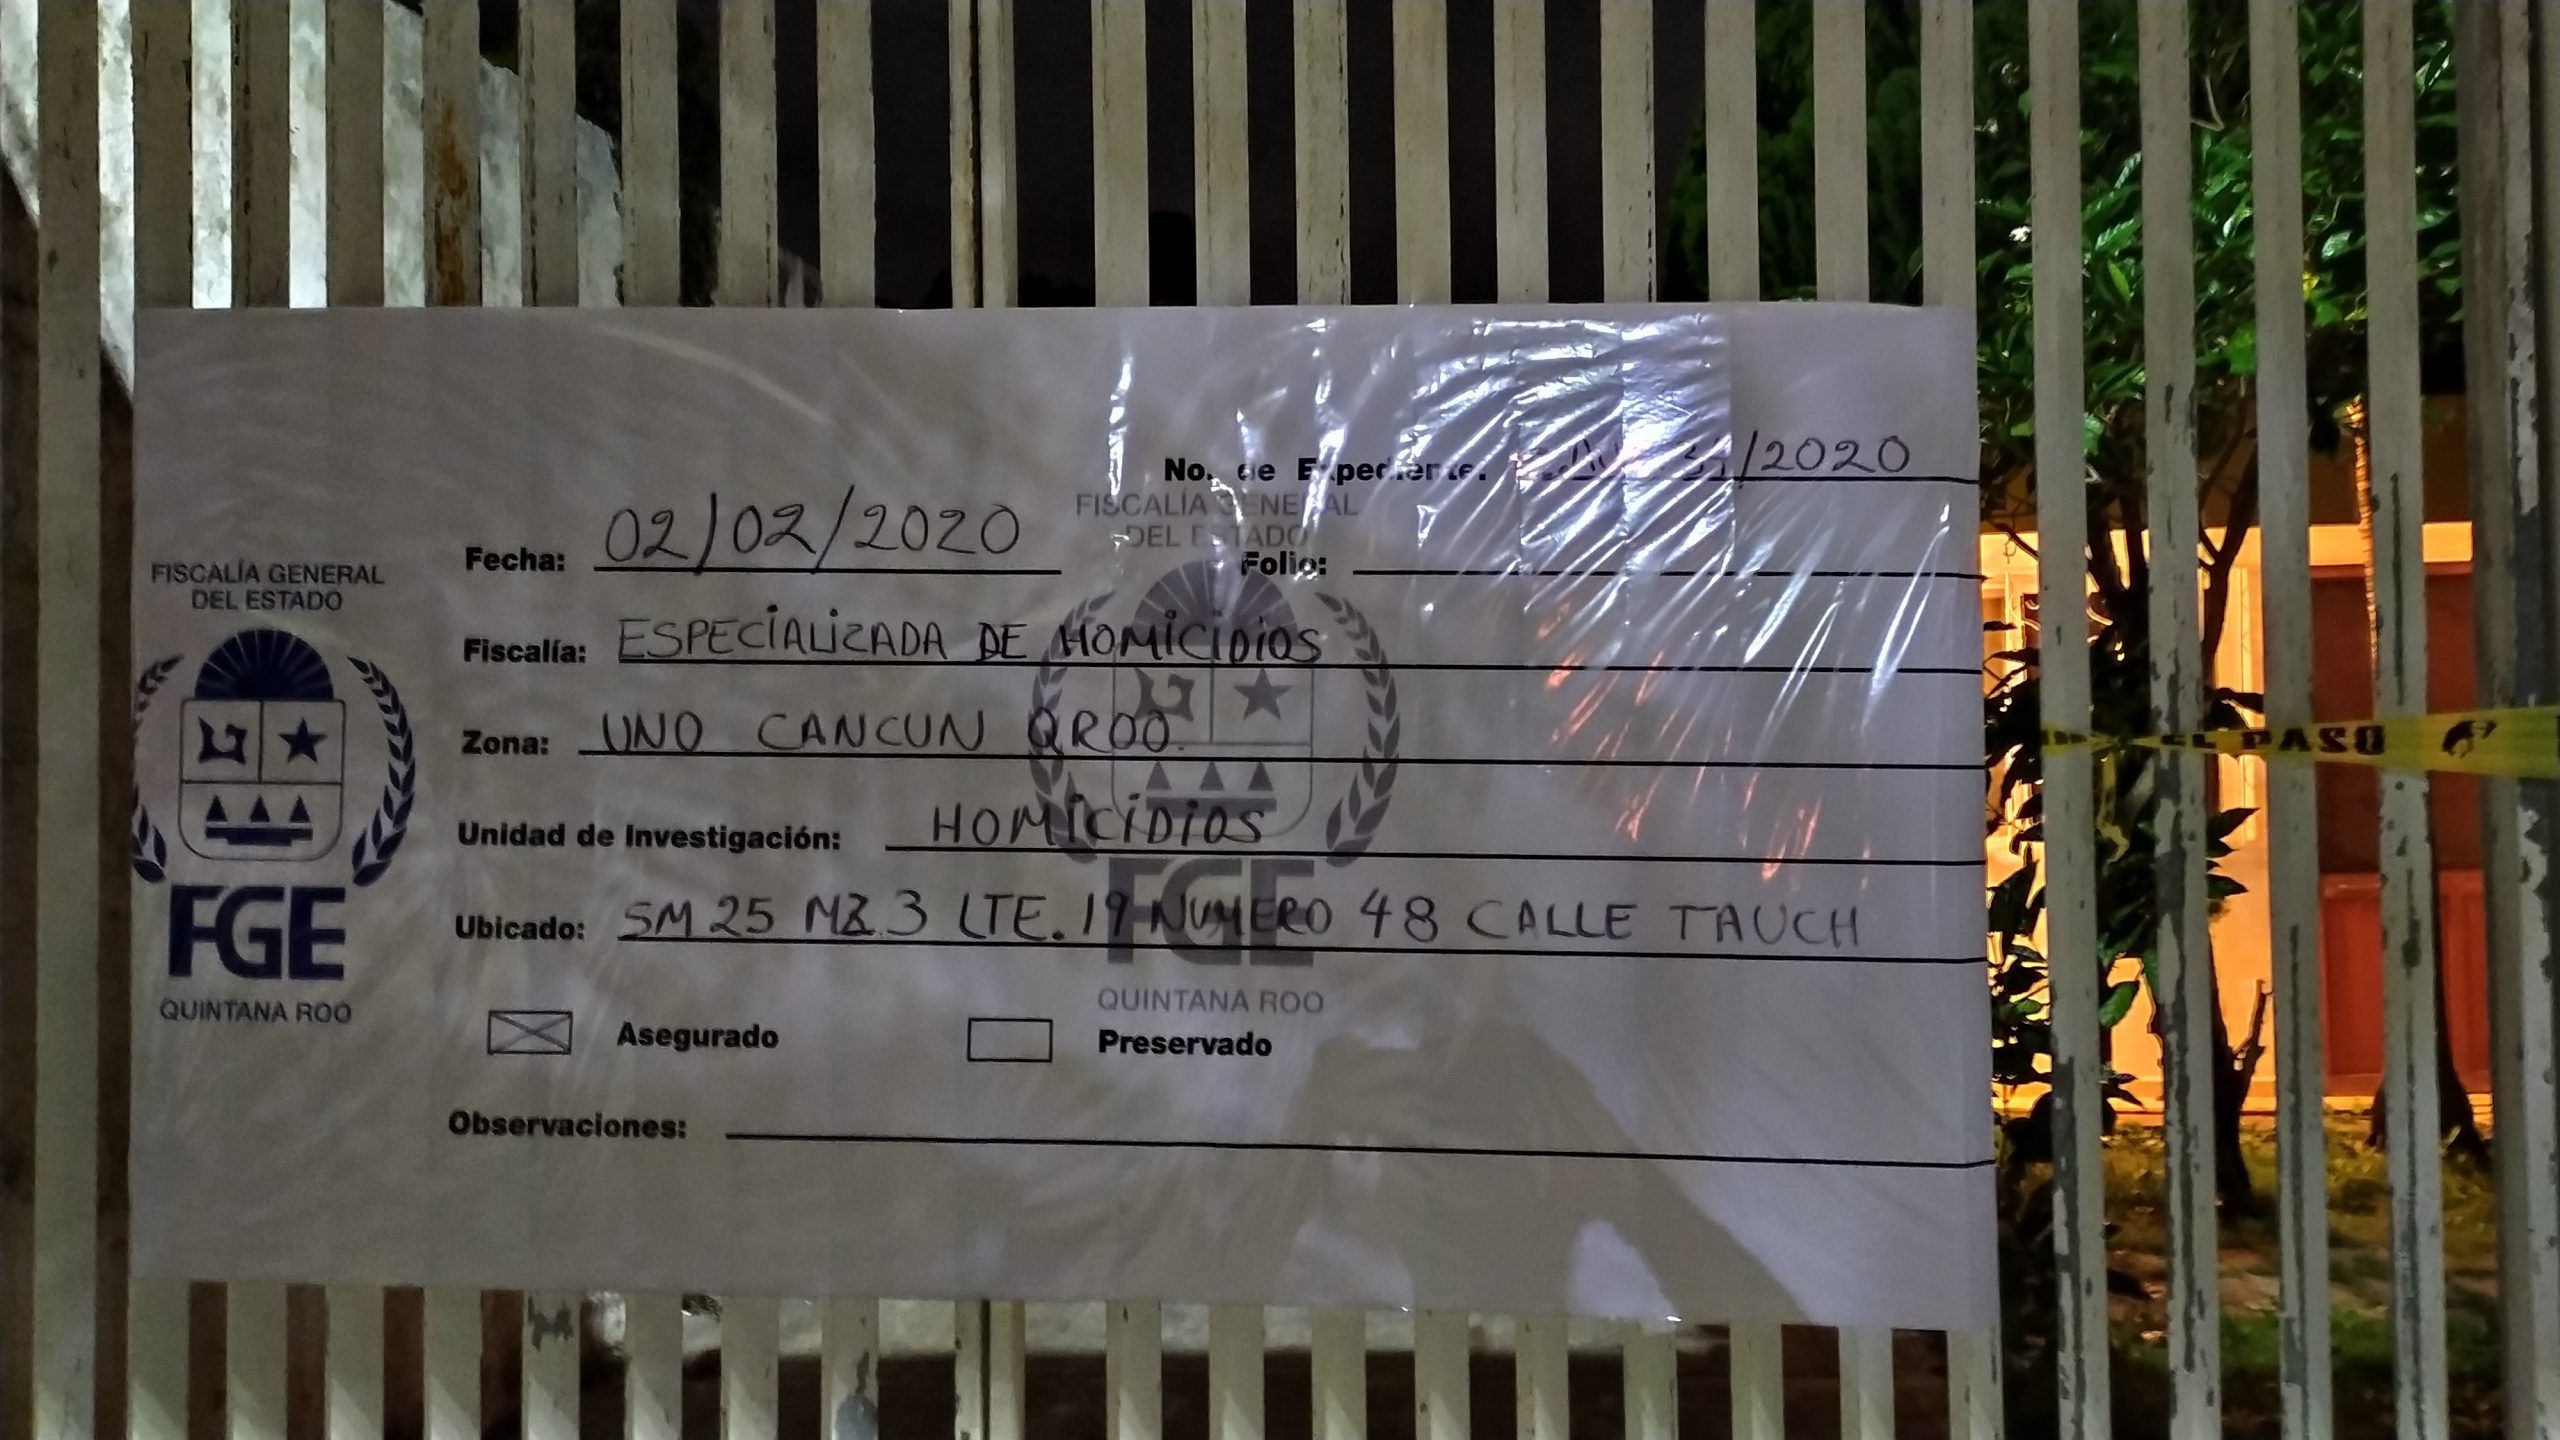 No. de Expediente: /2020
FISCALÍA GENERAL
DEL ESTADO
Fecha: 02/02/2020
Folio:
FISCALÍA GENERAL
DEL ESTADO
Fiscalía: ESPECIALIZADA DE HOMICIDIOS
Zona: UNO CANCUN QROO.
Unidad de Investigación: HOMICIDIOS
FGE
QUINTANA ROO
Ubicado: SM 25 MZ. 3 LTE. 19 NUMERO 48 CALLE TAUCH
FGE
QUINTANA ROO
Asegurado
Preservado
Observaciones:
PASO